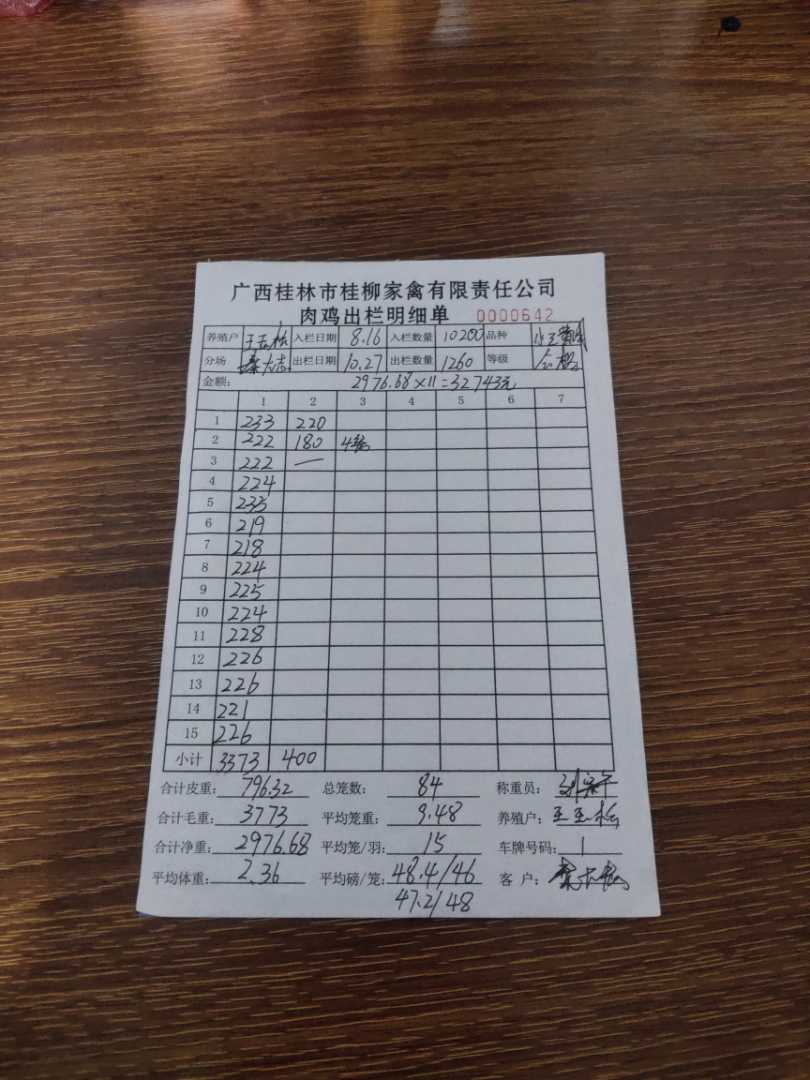 广西桂林市桂柳家禽有限责任公司
肉鸡出栏明细单 0000642
养殖户 入栏日期 8.16 入栏数量 10200 品种
分场 出栏日期 10.27 出栏数量 1260 等级
金额: 2976.68×11=32743元
1 2 3 4 5 6 7
1 233 220
2 222 180
3 222 —
4 224
5 233
6 219
7 218
8 224
9 225
10 224
11 228
12 226
13 226
14 221
15 226
小计 3373 400
合计皮重: 796.32 总笼数: 84 称重员:
合计毛重: 3773 平均笼重: 9.48 养殖户:
合计净重: 2976.68 平均笼/羽: 15 车牌号码: 1
平均体重: 2.36 平均磅/笼: 48.4/46 客户:
47.2/48